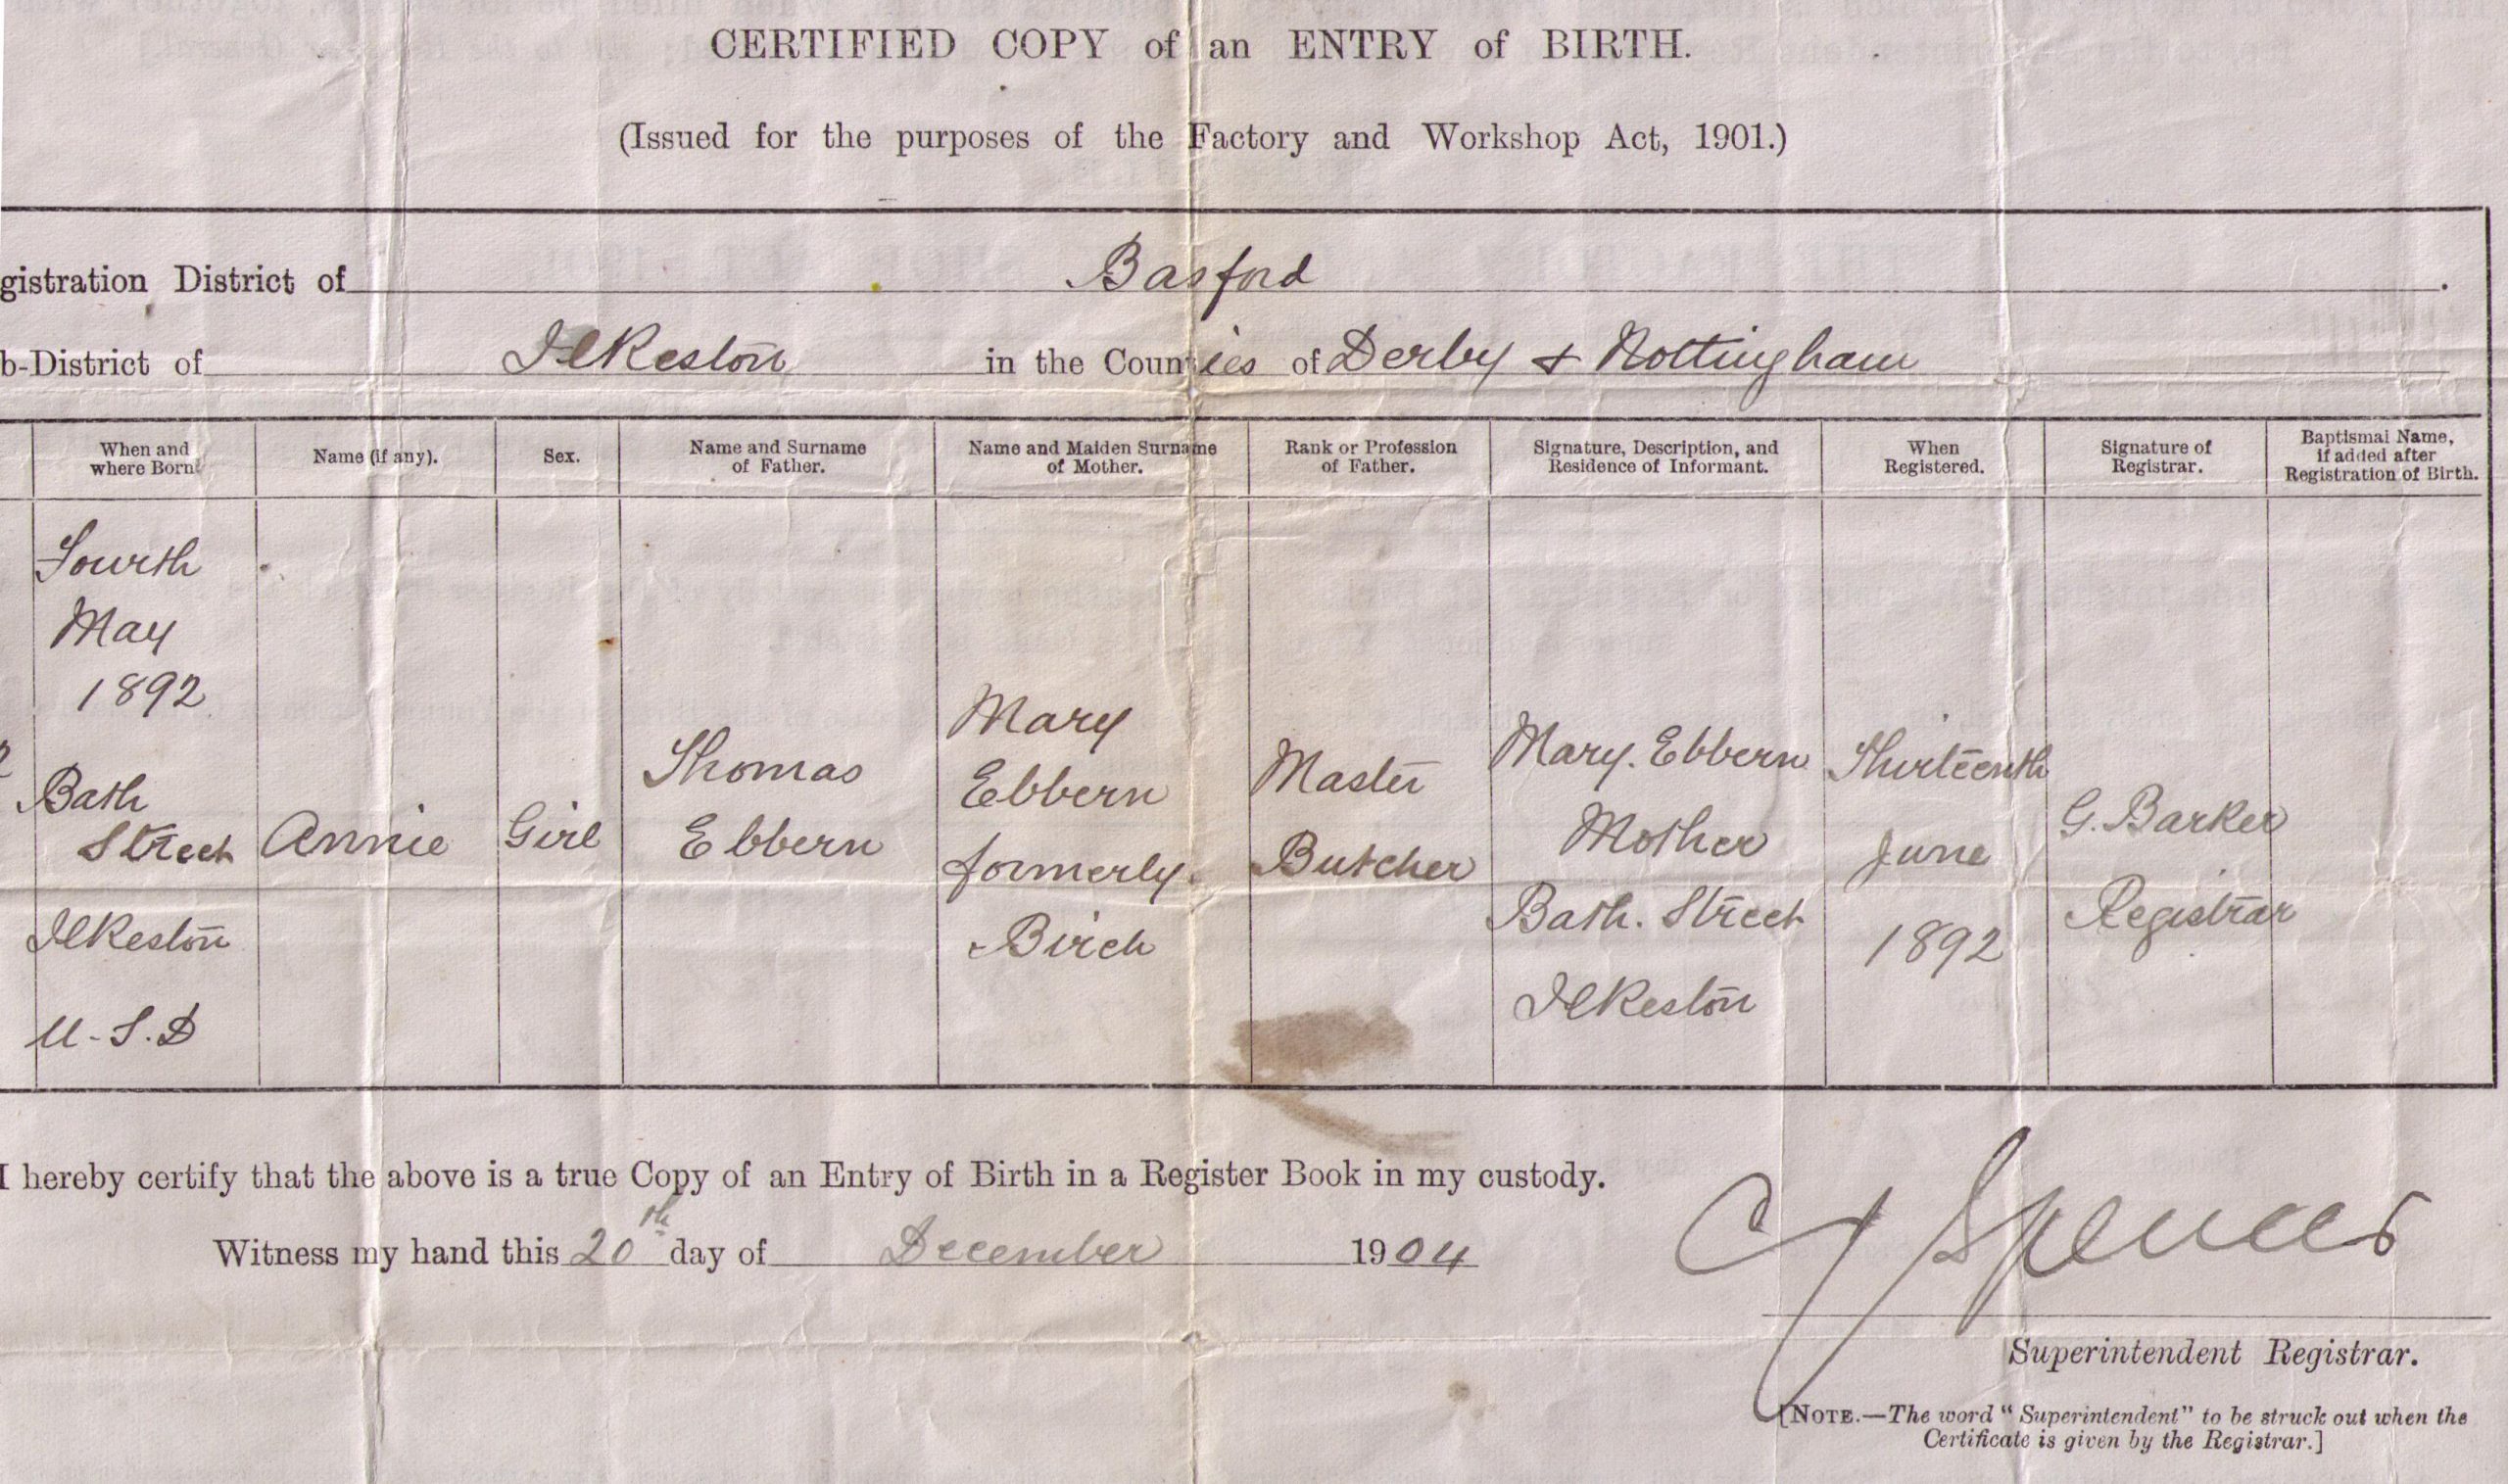 CERTIFIED COPY of an ENTRY of BIRTH.
(Issued for the purposes of the Factory and Workshop Act, 1901.)
gistration District of Basford.
b-District of Ilkeston in the Counties of Derby & Nottingham
When and where Born.
Name (if any).
Sex.
Name and Surname of Father.
Name and Maiden Surname of Mother.
Rank or Profession of Father.
Signature, Description, and Residence of Informant.
When Registered.
Signature of Registrar.
Baptismal Name, if added after Registration of Birth.
Fourth
May
1892
Bath
Street
Ilkeston
U-S.D
Annie
Girl
Thomas
Ebbern
Mary
Ebbern
formerly.
Birch
Master
Butcher
Mary. Ebbern
Mother
Bath. Street
Ilkeston
Thirteenth
June
1892
G. Barker
Registrar
I hereby certify that the above is a true Copy of an Entry of Birth in a Register Book in my custody.
Witness my hand this 20th day of December 1904
Spencer
Superintendent Registrar.
[NOTE.—The word "Superintendent" to be struck out when the
Certificate is given by the Registrar.]